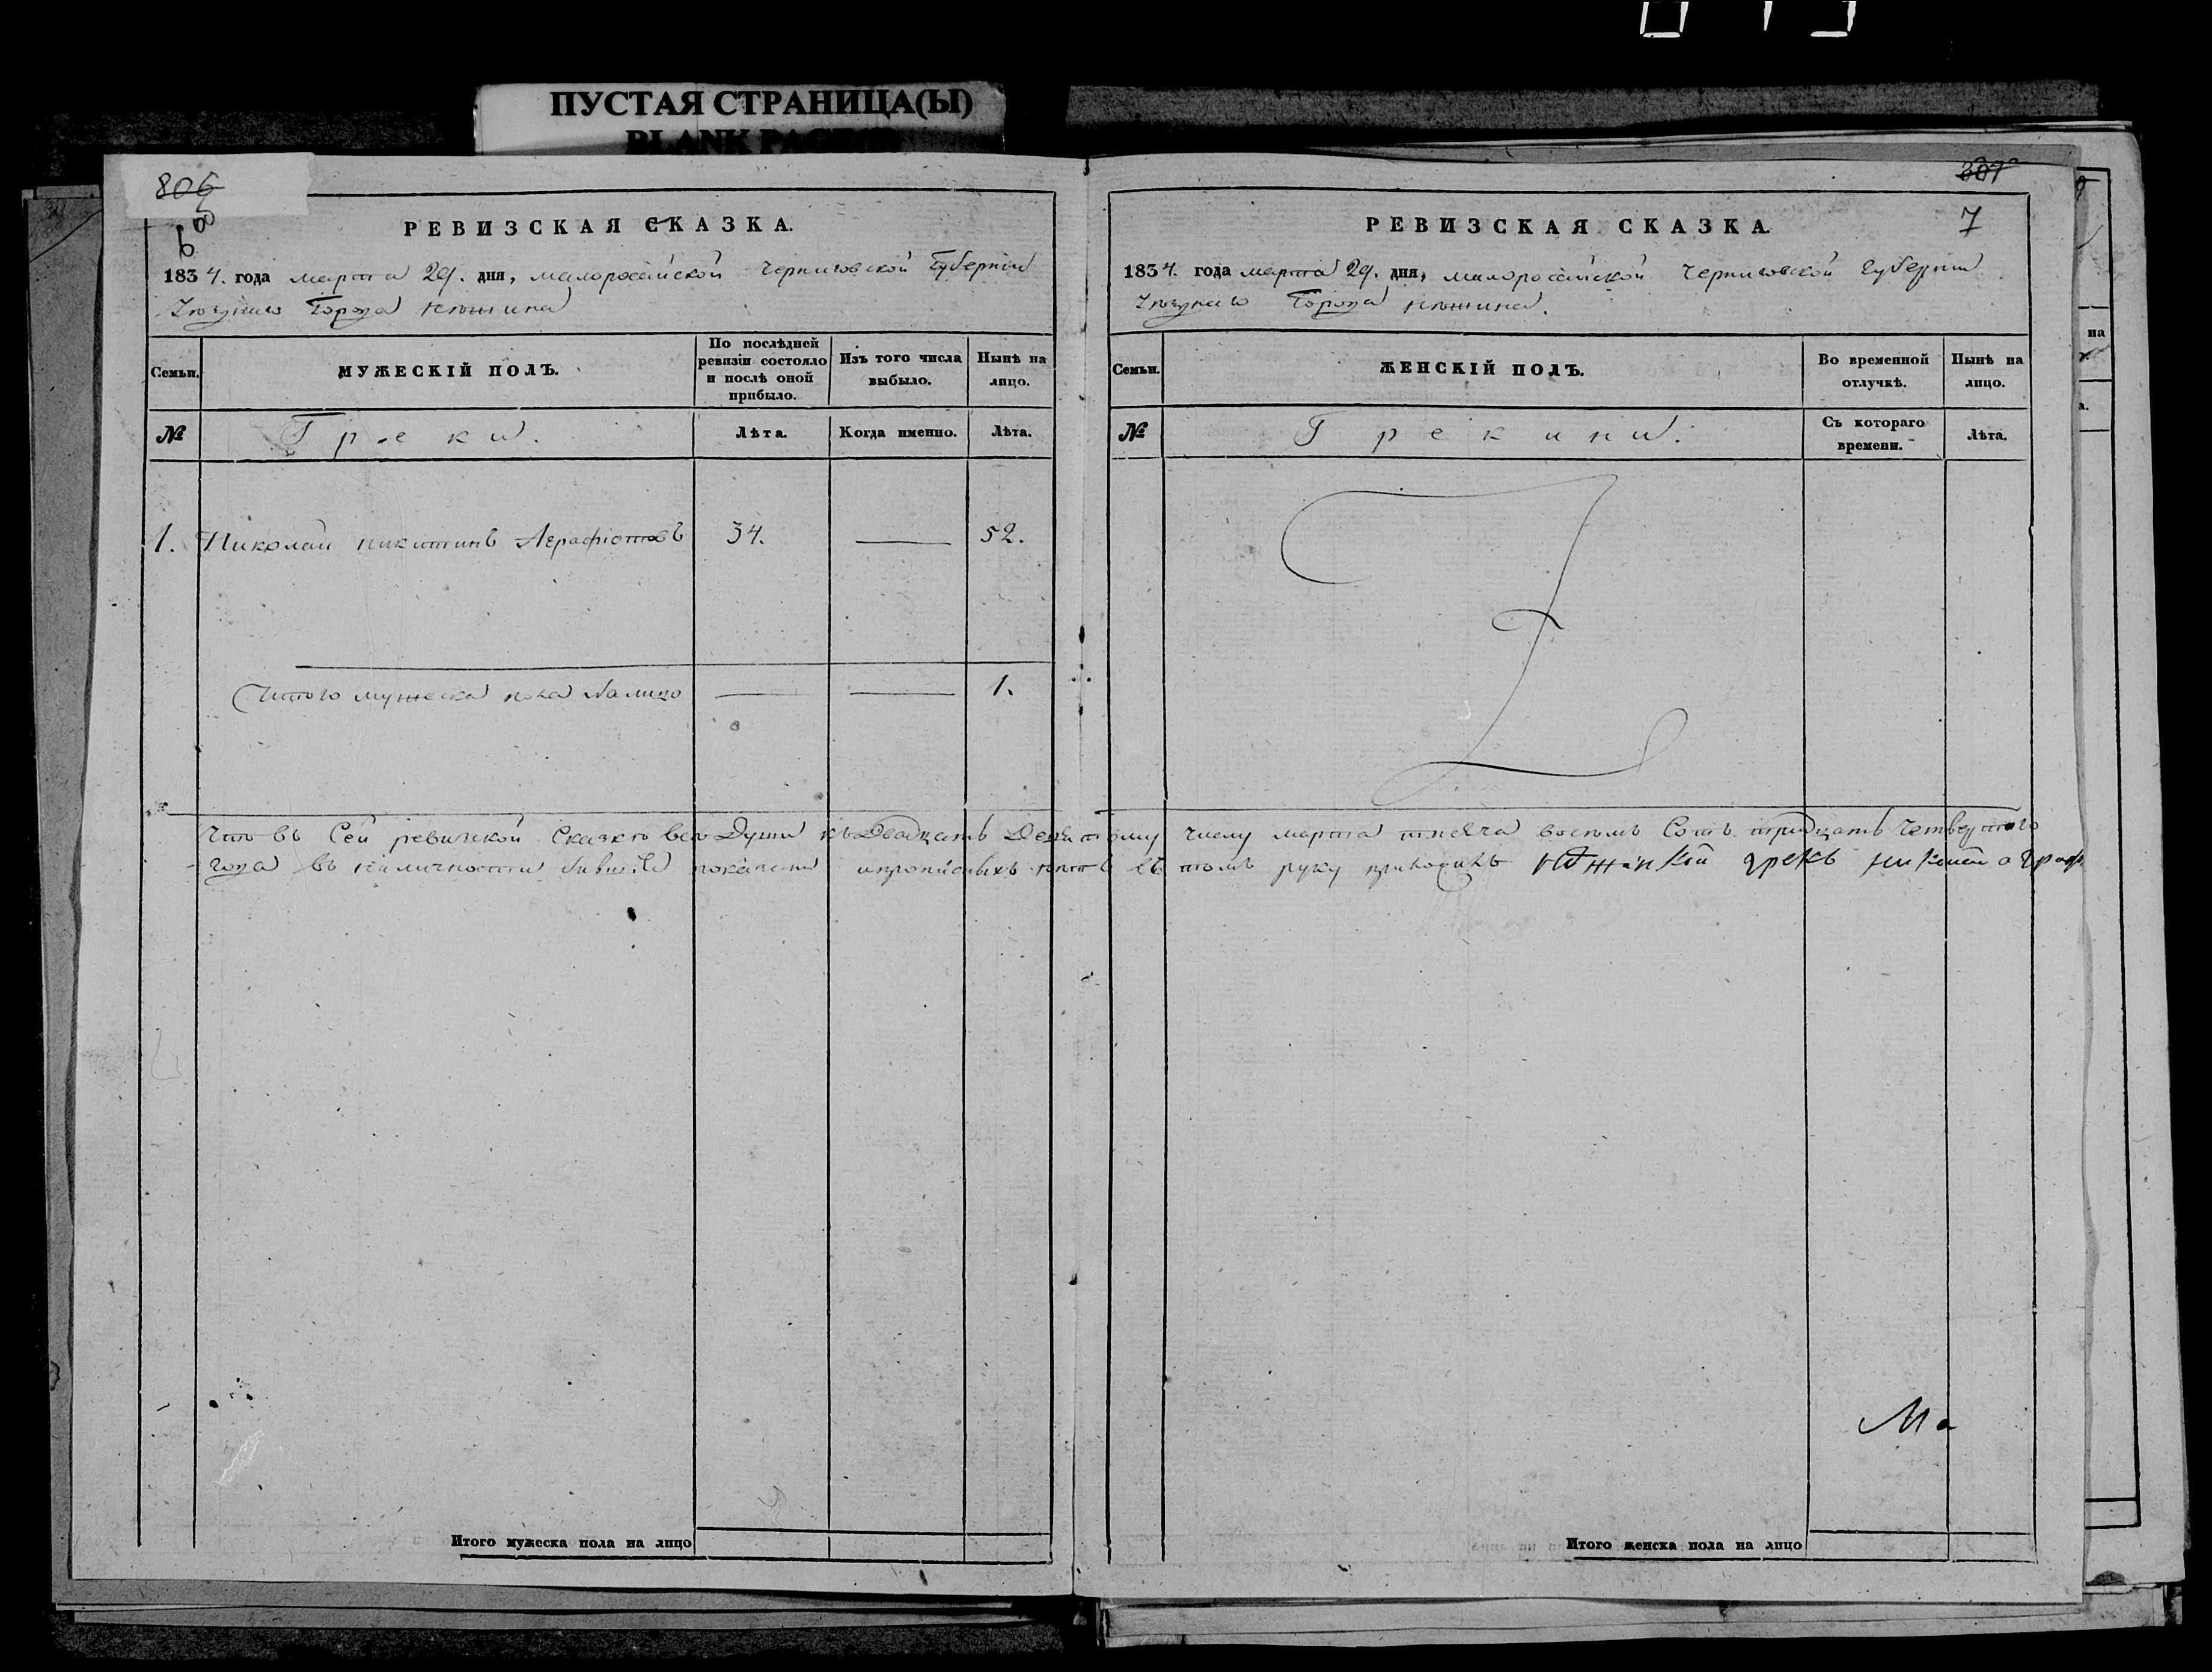 ПУСТАЯ СТРАНИЦА(Ы)
BLANK PAGE(S)
806
РЕВИЗСКАЯ СКАЗКА.
1834. года марта 29. дня, малоросійской Черниговской Губерніи
Уѣзднаго Города нѣжина
Семьи.
МУЖЕСКІЙ ПОЛЪ.
По послѣдней ревизіи состояло и послѣ оной прибыло.
Изъ того числа выбыло.
Нынѣ на лицо.
№
Греки.
Лѣта.
Когда именно.
Лѣта.
1. Николай никитинъ 34. — 52.
Итого мужеска пола Налицо — — 1.
Итого мужеска пола на лицо
307
7
РЕВИЗСКАЯ СКАЗКА.
1834. года марта 29. дня, малоросійской Черниговской Губерніи
Уѣзднаго Города нѣжина.
Семьи.
ЖЕНСКІЙ ПОЛЪ.
Во временной отлучкѣ.
Нынѣ на лицо.
№
Грекини.
Съ котораго времени.
Лѣта.
что въ Сей ревизкой Сказкѣ все Души къ Двадцать Девятому числу марта тысяча восемь Сотъ тридцать Четвертого
года въ наличности бывшіе показаны и прописныхъ нѣтъ въ томъ руку приложилъ нѣжинкій грекъ
Ма
Итого женска пола на лицо